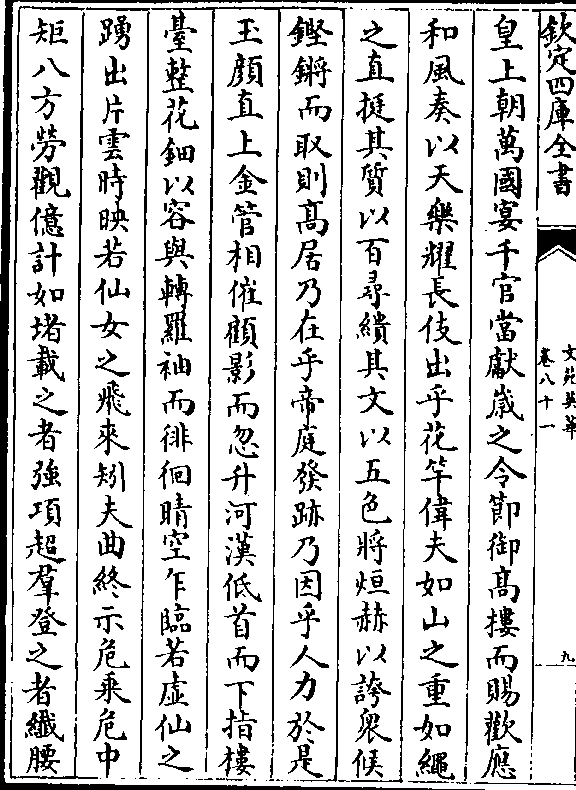 欽定四庫全書
文苑英華
卷八十一
九
皇上朝萬國宴千官當獻歲之令節御髙樓而賜歡應
和風奏以天樂耀長伎出乎花竿偉夫如山之重如繩
之直挺其質以百尋繢其文以五色將烜赫以誇衆候
鏗鏘而取則髙居乃在乎帝庭發跡乃因乎人力於是
玉顔直上金管相催顧影而忽升河漢低首而下指樓
臺整花鈿以容與轉羅袖而徘徊晴空乍臨若虚仙之
踴出片雲時映若仙女之飛來矧夫曲終示危乘危中
矩八方勞觀億計如堵載之者強項超羣登之者纖腰